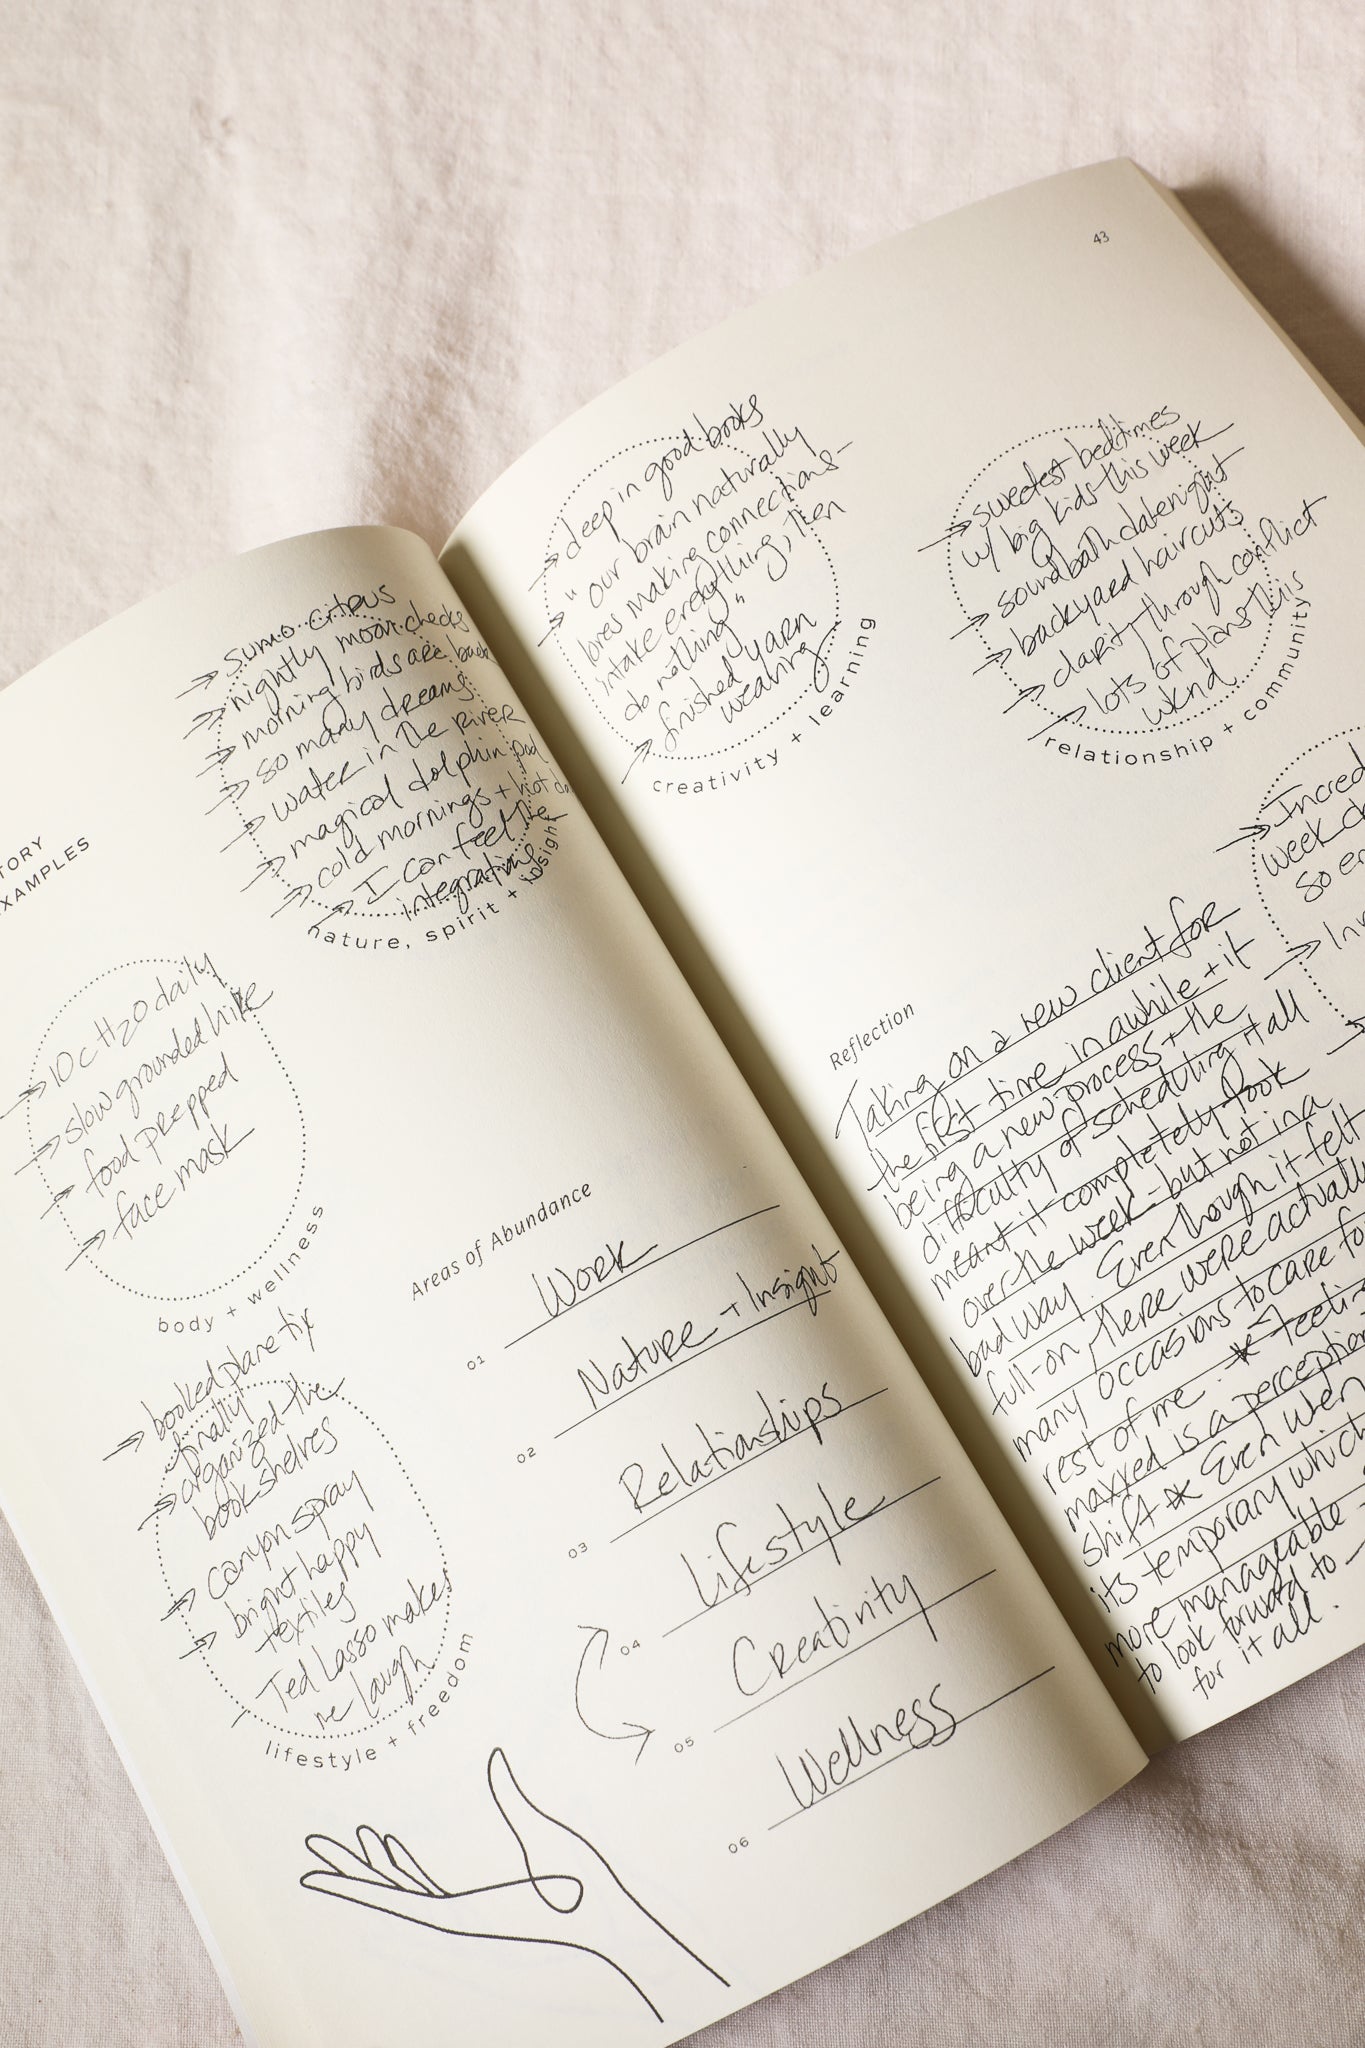 TORY
XAMPLES
→ sumo citrus
→ nightly moon checks
→ morning birds are back
→ so many dreams
→ water in the river
→ magical dolphin pod
→ cold mornings + hot da
→ I can feel the
integrations
nature, spirit + insight
→ 10c H2O daily
→ slow grounded hike
→ food prepped
→ face mask
body + wellness
→ booked plane tix
finally
→ organized the
bookshelves
→ canyon spray
→ bright happy
textiles
- Ted Lasso makes
me laugh
lifestyle + freedom
Areas of Abundance
01 Work
02 Nature + Insight
03 Relationships
04 Lifestyle
05 Creativity
06 Wellness
43
→ deep in good books
→ "our brain naturally
loves making connections-
intake everything, then
do nothing"
→ finished yarn
weaving
creativity + learning
→ sweetest bedtimes
w/ big kids this week
→ soundbath datenight
→ backyard haircuts
→ clarity through conflict
→ lots of plans this
wknd
relationship + community
→ Incred
week
so
→
Reflection
Taking on a new client for
the first time in awhile + it
being a new process + the
difficulty of scheduling it all
meant it completely took
over the week - but not in a
bad way. Even though it felt
full-on, there were actually
many occasions to care fo
rest of me. * Feelin
maxxed is a perception
shift * Even when
its temporary which
more manageable -
to look forward to -
for it all.